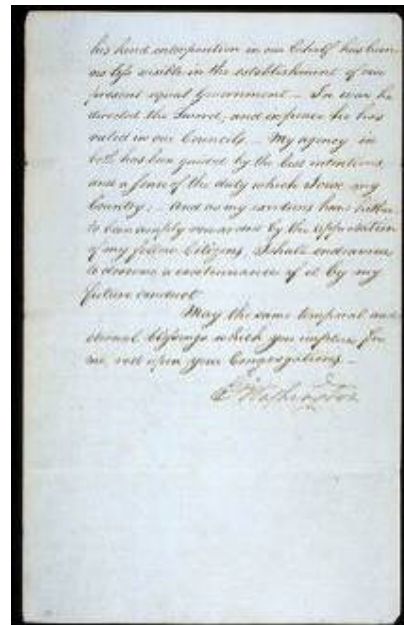 his kind interposition in our behalf has been
no less visible in the establishment of our
present equal Government — In war he
directed the Sword, and in peace he has
ruled in our Councils — My agency in
both has been guided by the best intentions,
and a sense of the duty which I owe my
Country: And as my exertions have hither
to been amply rewarded by the approbation
of my fellow Citizens, I shall endeavour
to deserve a continuance of it by my
future conduct
May the same temporal and
eternal blessings which you implore for
me, rest upon your Congregations —
G. Washington